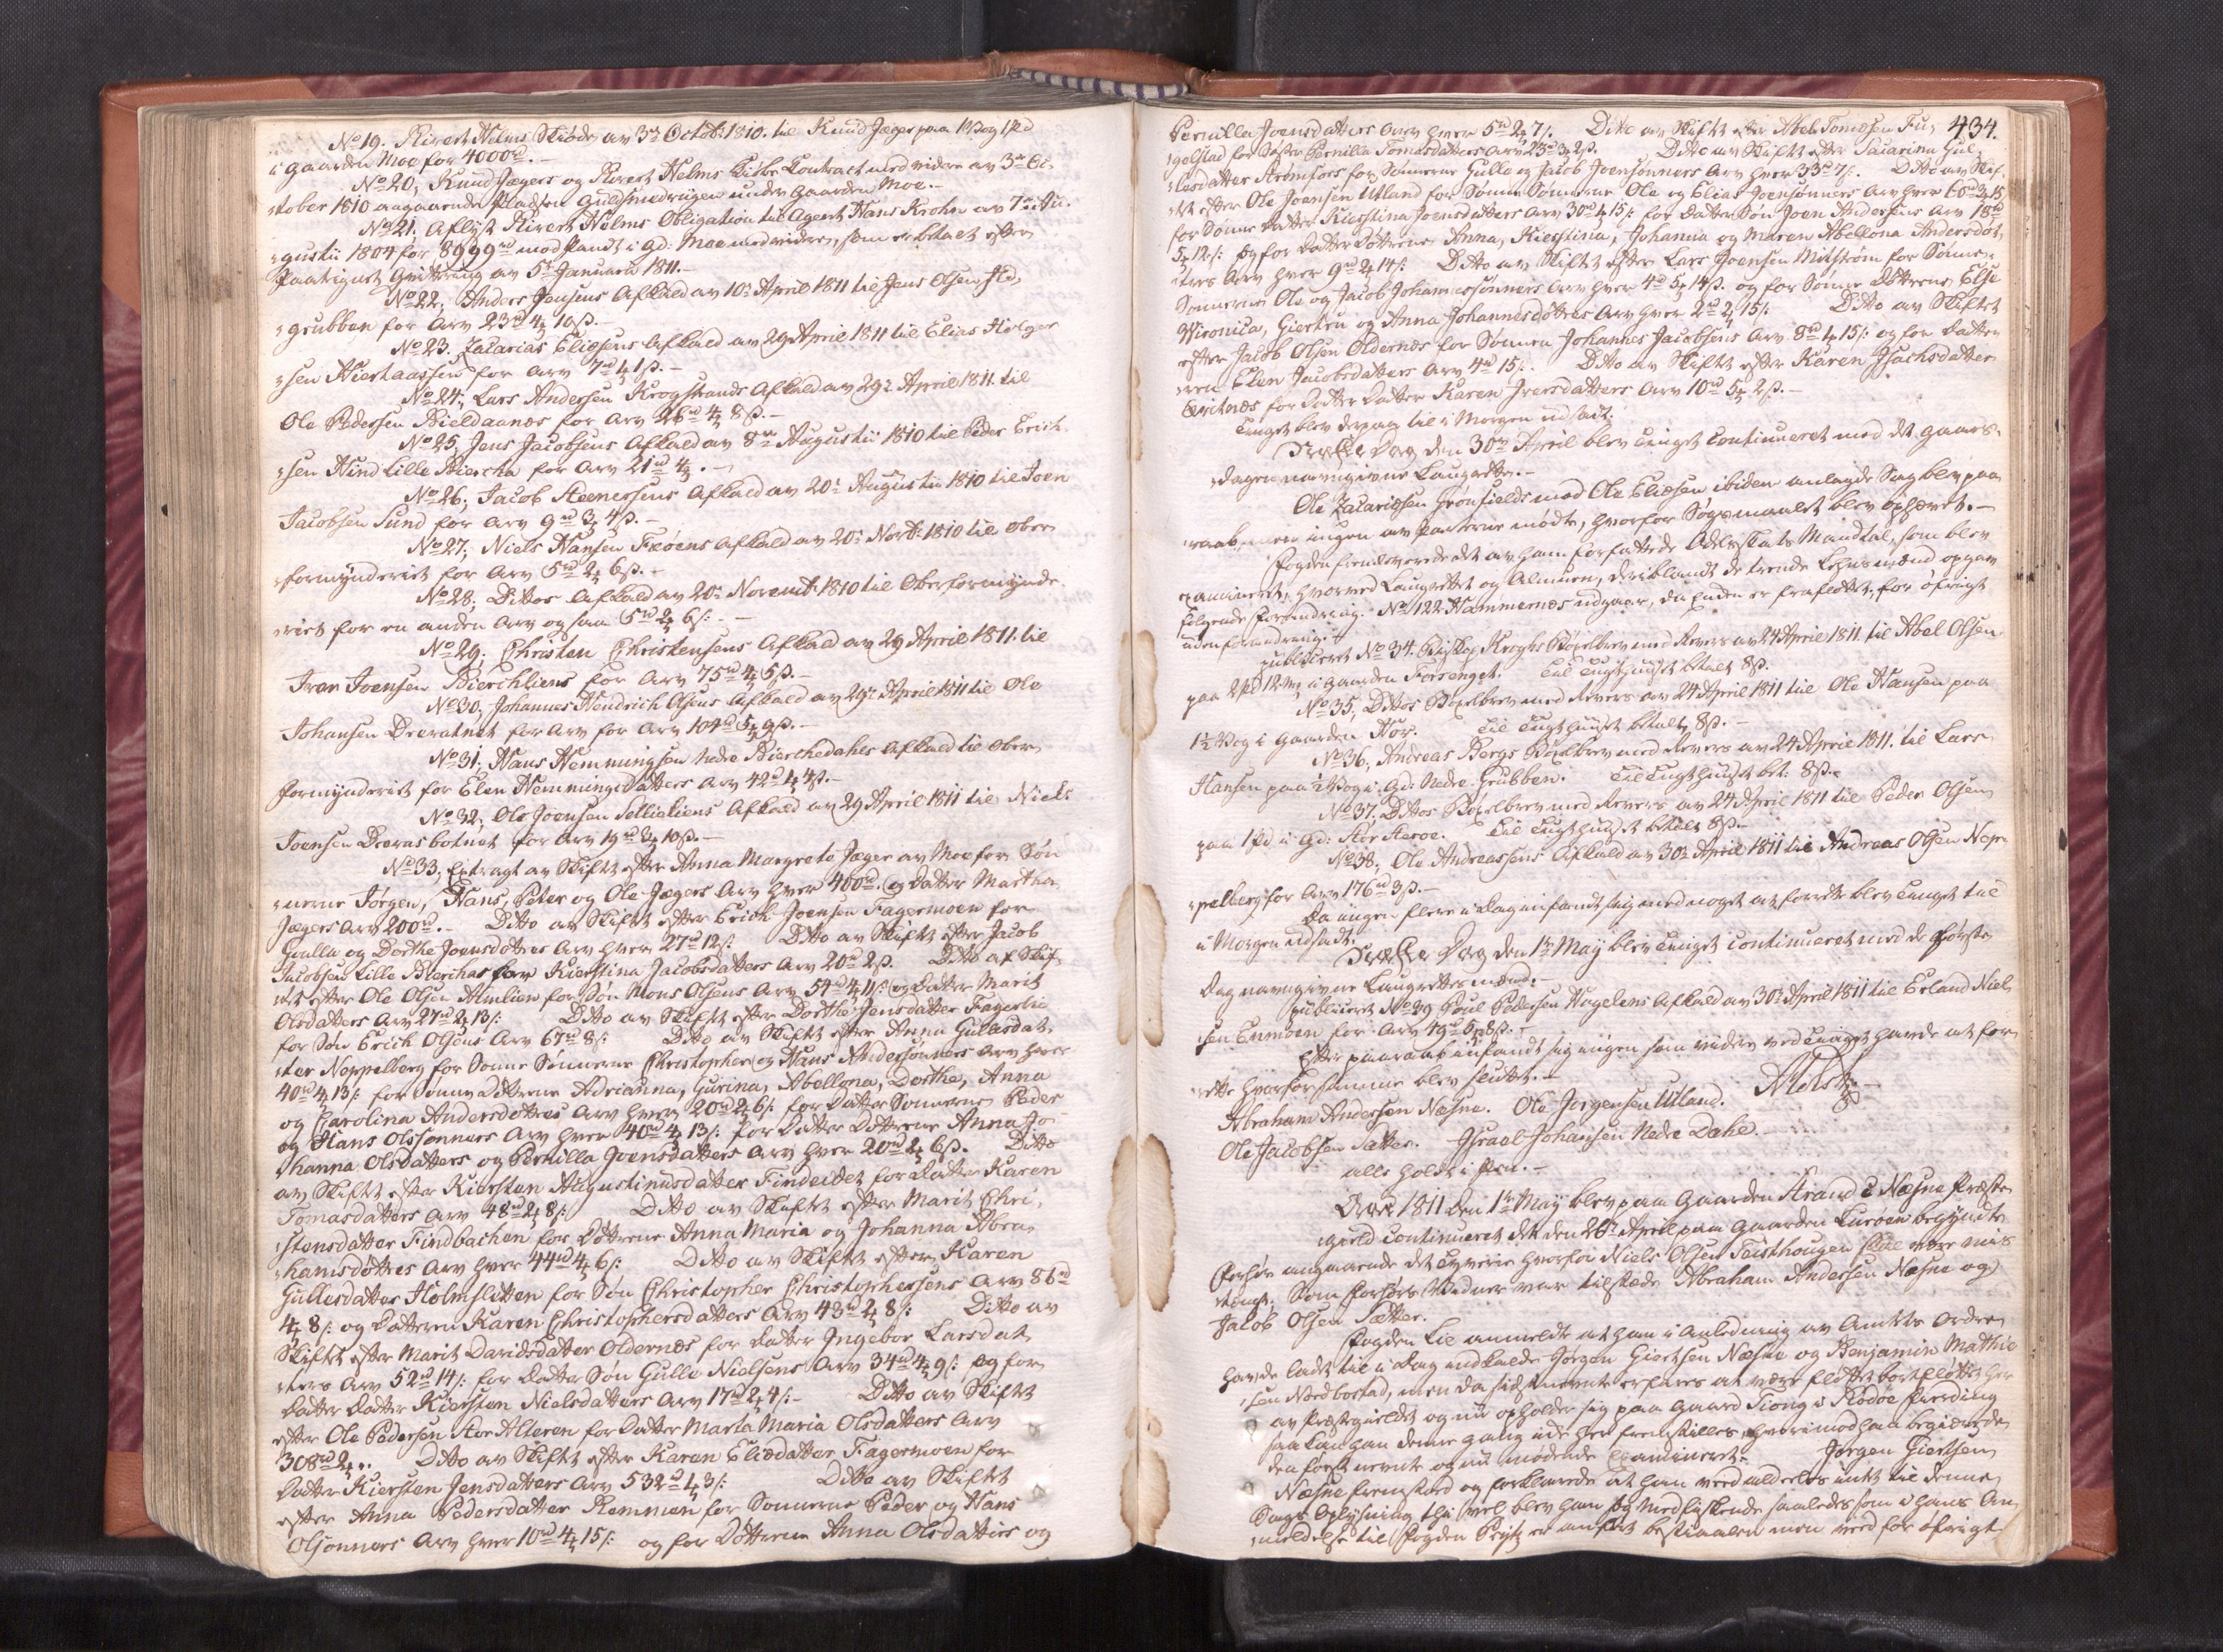 No 19. Rivert Helms Skiøde av 3de Octob: 1810. til Knud Jæger paa 1 Vog 1 Pd
i gaarden Moe for 4000rd.-
No 20, Knud Jægers og Rivert Helms Kiøbe Contract med videre av 3de Oc-
tober 1810 angaaende Pladsen Guldsmedvigen under gaarden Moe.-
No 21. Aflyst Rivert Helms Obligation til Agent Hans Krohn av 7de Au-
gustii 1804 for 8999rd mod Pandt i gd: Moe med videre, som er betalt efter
Paategnet Qvittering av 5te Januarii 1811.-
No 22, Anders Jensens Afkald av 10de April 1811 til Jens Olsen
grubben for Arv 23rd 4 10ß.-
No 23. Zacarias Eliæsens Afkald av 29 April 1811 til Elias Holger
sen for Arv 7rd 4 1ß.-
No 24, Lars Andersen Krogstrands Afkald av 29de April 1811. til
Ole Pedersen Bieldaanes for Arv 26rd 4 8ß.-
No 25, Jens Jacobsens Afkald av 8de Augustii 1810 til Peder Erich-
sen Hind Lille Biercha for Arv 21rd 4.-
No 26, Jacob Steenersens Afkald av 20de Augustii 1810 til Joen
Jacobsen Sund for Arv 9rd 3 4ß.-
No 27, Niels Hansen Afkald av 20de Novb: 1810 til Ober-
formynderiet for Arv 5rd 2 6ß.-
No 28, Dittos Afkald av 20de Novemb: 1810 til Oberformynde-
riet for en anden Arv ogsaa 5rd 2 6ß.-
No 29. Christen Christensens Afkald av 29 April 1811. til
Iver Joensen Bierchliens for Arv 75rd 4 5ß.-
No 30, Johannes Hendrich Olsens Afkald av 29de April 1811 til Ole
Johansen Drevatnet for Arv for Arv 104rd 5 9ß.-
No 31, Hans Hemmingsen Nedre Bierchedahls Afkald til Ober-
formynderiet for Elen Hemmingsdatters Arv 42rd 1 4ß.-
No 32, Ole Joensen Selliliens Afkald av 29 April 1811 til Niels
Joensen Drevasbotnet for Arv 19rd 3 10ß.-
No 33. Extragt av Skiftet efter Anna Margrete Jæger av Moe for Søn-
nerne Jørgen, Hans, Peter og Ole Jægers Arv hver 400rd. og Datter Martha
Jægers Arv 200rd.- Ditto av Skiftet efter Erich Joensen Fagermoen for
Gualla og Dorthe Joensdøttres Arv hver 27rd 12ß. Ditto av Skiftet efter Jacob
Jacobsen Lille Bierchas for Kierstina Jacobsdatters Arv 20rd 2ß. Ditto af Skif-
tet efter Ole Olsen Almlien for Søn Mons Olsens Arv 54rd 4 11ß: og Datter Marit
Olsdatters Arv 27rd 2 13ß: Ditto av Skiftet efter Dorthe Jensdatter Fagerlie
for Søn Erich Olsens Arv 67rd 8ß: Ditto av Skiftet efter Anna Gulesdat-
ter Neppelberg for Sønne Sønnerne Christopher og Hans Andersønners Arv hver
40rd 4 13ß: for Sønne Døttrene Adrianna, Gurina, Abellona, Dorthe, Anna
og Carolina Andersdøttres Arv hver 20rd 2 6ß: for Datter Sønnerne Peder
og Hans Olssønners Arv hver 40rd 4 13ß: for Datter Døttrene Anna Jo-
hanna Olsdatters og Pernilla Joensdatters Arv hver 20rd 2 6ß. Ditto
av Skiftet efter Kiersten Augustinusdatter Findeidet for Datter Karen
Tomasdatters Arv 48rd 2 8ß: Ditto av Skiftet efter Marit Chri-
stensdatter Findbachen for Døttrene Anna Maria og Johanna Abra-
hamsdøttres Arv hver 44rd 4 6ß: Ditto av Skiftet efter Karen
Gullesdatter Holmsletten for Søn Christopher Christophersens Arv 86rd
4 8ß: og Datteren Karen Christophersdatters Arv 43rd 2 8ß: Ditto av
Skiftet efter Marit Davidsdatter Oldernæs for Datter Ingebor Larsdat-
ters Arv 52rd 14ß: for Datter Søn Gulle Nielsens Arv 34rd 4 9ß: og for
Datter Datter Kiersten Nielsdatters Arv 17rd 2 4ß:- Ditto av Skiftet
efter Ole Pedersen Stor Alteren for Datter Marta Maria Olsdatters Arv
308rd 2. Ditto av Skiftet efter Karen Eliædatter Fagermoen for
Datter Kiersten Jensdatters Arv 532rd 1 3ß: Ditto av Skiftet
efter Anna Pedersdatter Remmen for Sønnerne Peder og Hans
Olsønners Arv hver 10rd 4 15ß: og for Døttrene Anna Olsdatters og
434.
Pernilla Joensdatters Arv hver 5rd 2 7ß. Ditto av Skiftet efter Abel Tomæsen Fu-
gelstad for Søster Pernilla Tomasdatters Arv 23rd 3 2ß. Ditto av Skiftet efter Zacarina Gul-
lesdatter Strømfors for Sønnerne Gulle og Jacob Joensønners Arv hver 33rd 7ß. Ditto av Skif-
tet efter Ole Joensen Utland for Sønne Sønnerne Ole og Elias Joensønners Arv hver 60rd 3 15
for Sønne Datter Kierstina Joensdatters Arv 30rd 1 15ß: for Datter Søn Joen Andersens Arv 18rd
5 12ß: og for Datter Døttrene Anna, Kierstina, Johanna og Maren Abellona Andersdøt-
tres Arv hver 9rd 2 14ß: Ditto av Skiftet efter Lars Joensen Milstrøm for Sønne-
Sønnerne Ole og Jacob Johannessønners Arv hver 4rd 5 14ß. og for Sønne Døttrene Else
Wironica, Giertru og Anna Johannesdøttres Arv hver 2rd 2 15ß: Ditto av Skiftet
efter Jacob Olsen Oldernæs for Sønnen Johannes Jacobsens Arv 8rd 1 15ß: og for Datte-
ren Elen Jacobsdatters Arv 4rd 15ß: Ditto av Skiftet efter Karen Isachsdatter
Qvitnæs for Datter Datter Karen Iversdatters Arv 10rd 5 2ß.-
Tinget blev derpaa til i Morgen udsadt.
Dag den 30de April blev Tinget Continueret med det gaars-
dagen navngivne Laugrette.-
Ole Zacariæsen Grønfields mod Ole Eliæsen ibidem anlagde Sag blev paa-
raabt, men ingen av Parterne mødte, hvorfor Søgsmaalet blev ophævet.-
Fogden fremleverede det av ham forfattede Odelskats Mandtal, som blev
examineret, hvorved Laugrettet og Almuen, deriblandt de trende Lehnsmænd opgav
følgende forandring. No 122 Hammernæs udgaar, da Enken er frafløttet, for øfrigt
uden forandring.
publiceret No 34. Biskop Kroghs Bøxelbrev med Revers av 24 April 1811. til Abel Olsen
paa 2 Pd 12 Mk i gaarden Forsenget. Til Tugthuuset betalt 8ß.
No 35, Dittos Bøxelbrev med Revers av 24 April 1811 til Ole Hansen paa
1½ Vog i Gaarden Hov. Til Tugthuuset betalt 8ß.-
No 36, Andreas Bergs Bøxelbrev med Revers av 24 April 1811. til Lars
Hansen paa ½ Vog i gd: Nedre Grubben. Til Tugthuuset bet: 8ß.-
No 37. Dittos Bøxelbrev med Revers av 24 April 1811 til Peder Olsen
paa 1 Pd i gd: Stor Hervoe. Til Tugthuuset betalt 8ß.-
No 38, Ole Andreassens Afkald av 30te April 1811 til Andreas Olsen Nep-
pelberg for Arv 176rd 3ß.-
Da ingen flere i Dag indfandt sig med noget at forrette blev Tinget til
i Morgen udsadt.
Dag den 1te May blev Tinget Continueret med de første
Dag navngivne Laugrettesmænd.-
publiceret No 39 Poul Pedersen Hagelens Afkald av 30te April 1811 til Erland Niel-
sen Enmoen for Arv 19rd 5 8ß.-
Efter paaraab indfandt sig ingen som videre ved Tinget havde at for-
rette hvorfor samme blev sluttet.-
Abraham Andersen Næsne. Ole Jørgensen Utland.
Ole Jacobsen Sætter. Israel Johansen Nedre Dahl.-
alle holdt i Pen.-
Aar 1811 den 1te May blev paa Gaarden Strand i Næsne Præste-
gield Continueret det den 26de April paa Gaarden Lurøen begyndte
Forhør angaaende det Tyverie hvorfor Niels Olsen Teisthougen skal være mis-
tænkt. Som Forhørs Vidner var tilstæde Abraham Andersen Næsne og
Jacob Olsen Sætter.
Fogden Lie anmeldte at han i Anledning av Amtets Ordre
havde ladet til i Dag indkalde Jørgen Giertsen Næsne og Benjamin Mathiæ-
sen Nordbostad, men da sidstnevnte erfares at være fløttet bortfløttet her
av Præstegieldet og nu opholder sig paa Gaard Tiong i Rødøe Fierding
saa kan han denne gang ikke her fremstilles, hvorimod han begiærede
den først nevnte og nu mødende Examineret.- Jørgen Giertsen
Næsne fremstod og forklarede at han veed aldeles intet til denne
Sags Oplysning thi vel blev han og Medfiskende saaledes som i hans An-
meldelse til Fogden er anført bestiaalen men veed for øfrigt